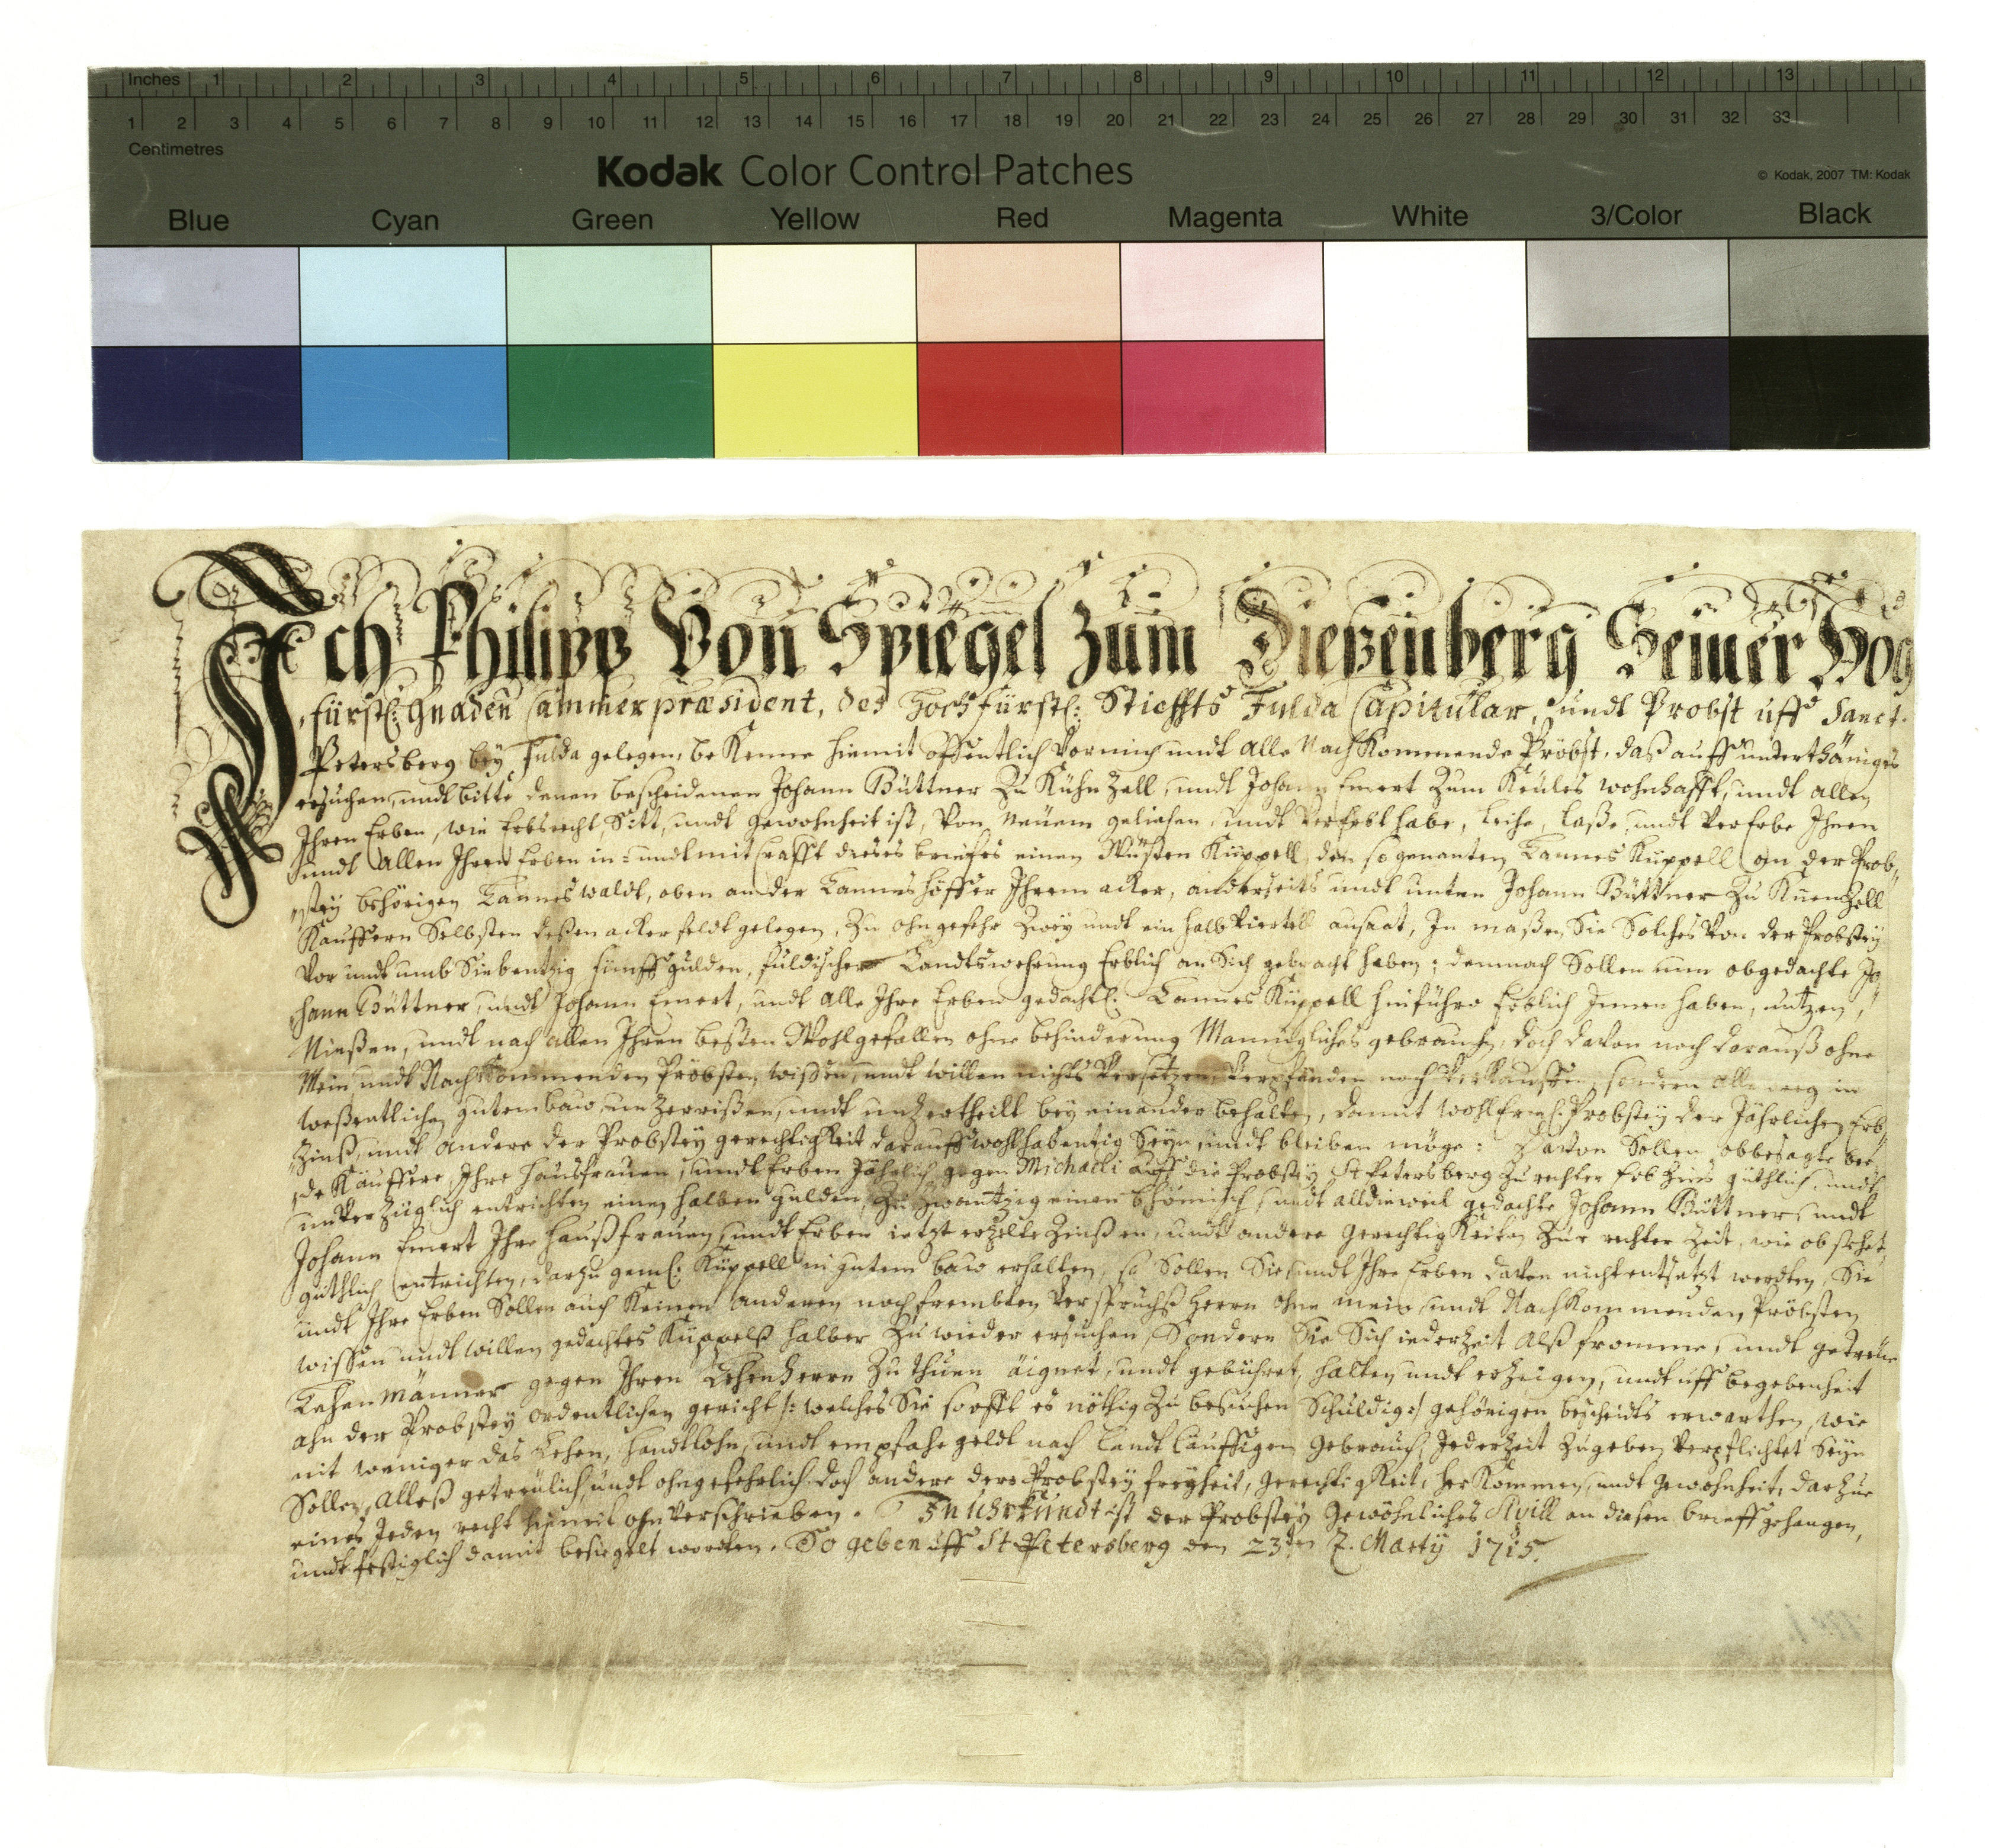 Inches 1 2 3 4 5 6 7 8 9 10 11 12 13
1 2 3 4 5 6 7 8 9 10 11 12 13 14 15 16 17 18 19 20 21 22 23 24 25 26 27 28 29 30 31 32 33
Centimetres
Kodak Color Control Patches
© Kodak, 2007 TM: Kodak
Blue Cyan Green Yellow Red Magenta White 3/Color Black
Ich Philipp Von Spiegel zum Diesenberg Seiner Hog
fürstl: Gnaden Cammerpræsident, des Hochfürstl: Stieffts Fulda Capitular, undt Probst uff Sanct
Petersberg bey Fulda gelegen, beKenne hiemit öffentlich vor mich undt alle NachKommende Pröbst, daß auff unterthäniges
ersuchen, undt bitte denen bescheidenen Johann Büttner Zu Kühnzell, undt Johann Emert Zum Keules wohnhafft, undt allen
Ihren Erben, wie Erbsrecht, Sitt, undt gewohnheit ist, von Neüem geliehen, undt vererbt habe, leihe, laße, undt vererbe Ihnen
undt allen Ihren Erben in= undt mit Crafft dieses brieffes einen Wüsten Küppell, den sogenanten Tannes Küppell an der Prob„
„stey behörigen Tannes waldt, oben an der Tanneshöffer Ihrem acker, anderseits undt unten Johann Büttner Zu Küenzell
Kauffern Selbsten deßen ackerfeldt gelegen, Zu ohngefehr Zwey undt ein halb viertell ausaat, In maßen Sie Solches von der Probstey
vor undt umb Siebentzig fünff gulden, fuldischer Landtswehrung Erblich an Sich gebracht haben; demnach Sollen nun obgedachte Jo„
„hann Büttner, undt Johann Emert, undt alle Ihre Erben gedachtl: Tannes Küppell hinführo Erblich Innen haben, nutzen,
Nießen, undt nach allen Ihren besten Wohlgefallen ohne behinderung Mannigliches gebrauchen, doch davon noch darauß ohne
Mein undt NachKommenden Pröbsten wißen, undt willen nichts versetzen, verpfänden noch verkauffen, sondern alle weg in
weßentlichen gutem baw, unzerrißen, undt unzertheilt bey einander behalten, damit Probstey der Jährlichen Erb„
„Zinß, undt andere der Probstey gerechtigKeit darauff wohlhabentig Seyn, undt bleiben möge: davon Sollen obbesagte bee„
„de Käuffere, Ihre haußfrauen, undt Erben Jährlich gegen Michaeli auff die Probstey St Petersberg Zu rechter Erb Zinß güthlich, undt
unverzüglich entrichten einen halben gulden, Zu Zwantzig einen böhmisch, undt alldieweil gedachte Johann Büttner, undt
Johann Emert Ihre haußfrauen, undt Erben ietzt erzelte Zinßen, undt andere GerechtigKeiten Zur rechter Zeit, wie obstehet,
güthlich entrichten, darzu geml: Küppell in gutem baw erhalten, so Sollen Sie, undt Ihre Erben davon nicht entsetzt werdten, Sie
undt Ihre Erben Sollen auch Keinen anderen noch frembten verspruchß Herrn ohne mein, undt NachKommenden Pröbsten
wissen undt willen gedachtes Küppelß halber Zuwieder ersuchen, Sondern Sie Sich iederzeit alß fromme, undt getreüe
Lehenmänner gegen Ihren Lehenherrn Zu thuen äignet, undt gebühret, halten undt erzeigen, undt uff begebenheit
ahn der Probstey ordentlichen gericht /: welches Sie so offt es nöthig Zu besuchen Schuldig :/ gehörigen bescheidts erwarthen, wie
nit weniger das Lehen, handtlohn, undt empfahegeldt nach Landtläuffigen Gebrauch, Jederzeit Zugeben verpflichtet Seyn
Sollen, alleß getreülich undt ohngefehrlich. Doch andere dero Probstey freyheit, gerechtigKeit, herKommen, undt gewohnheit, darzue
eines Jeden recht hiemit ohnverschrieben. In uhrkundt ist der Probstey Gewöhnliches Sigill an diesen brieff gehangen,
undt festiglich damit besiegelt wordten. So geben uff St Petersberg den 23ten Marty 1715.